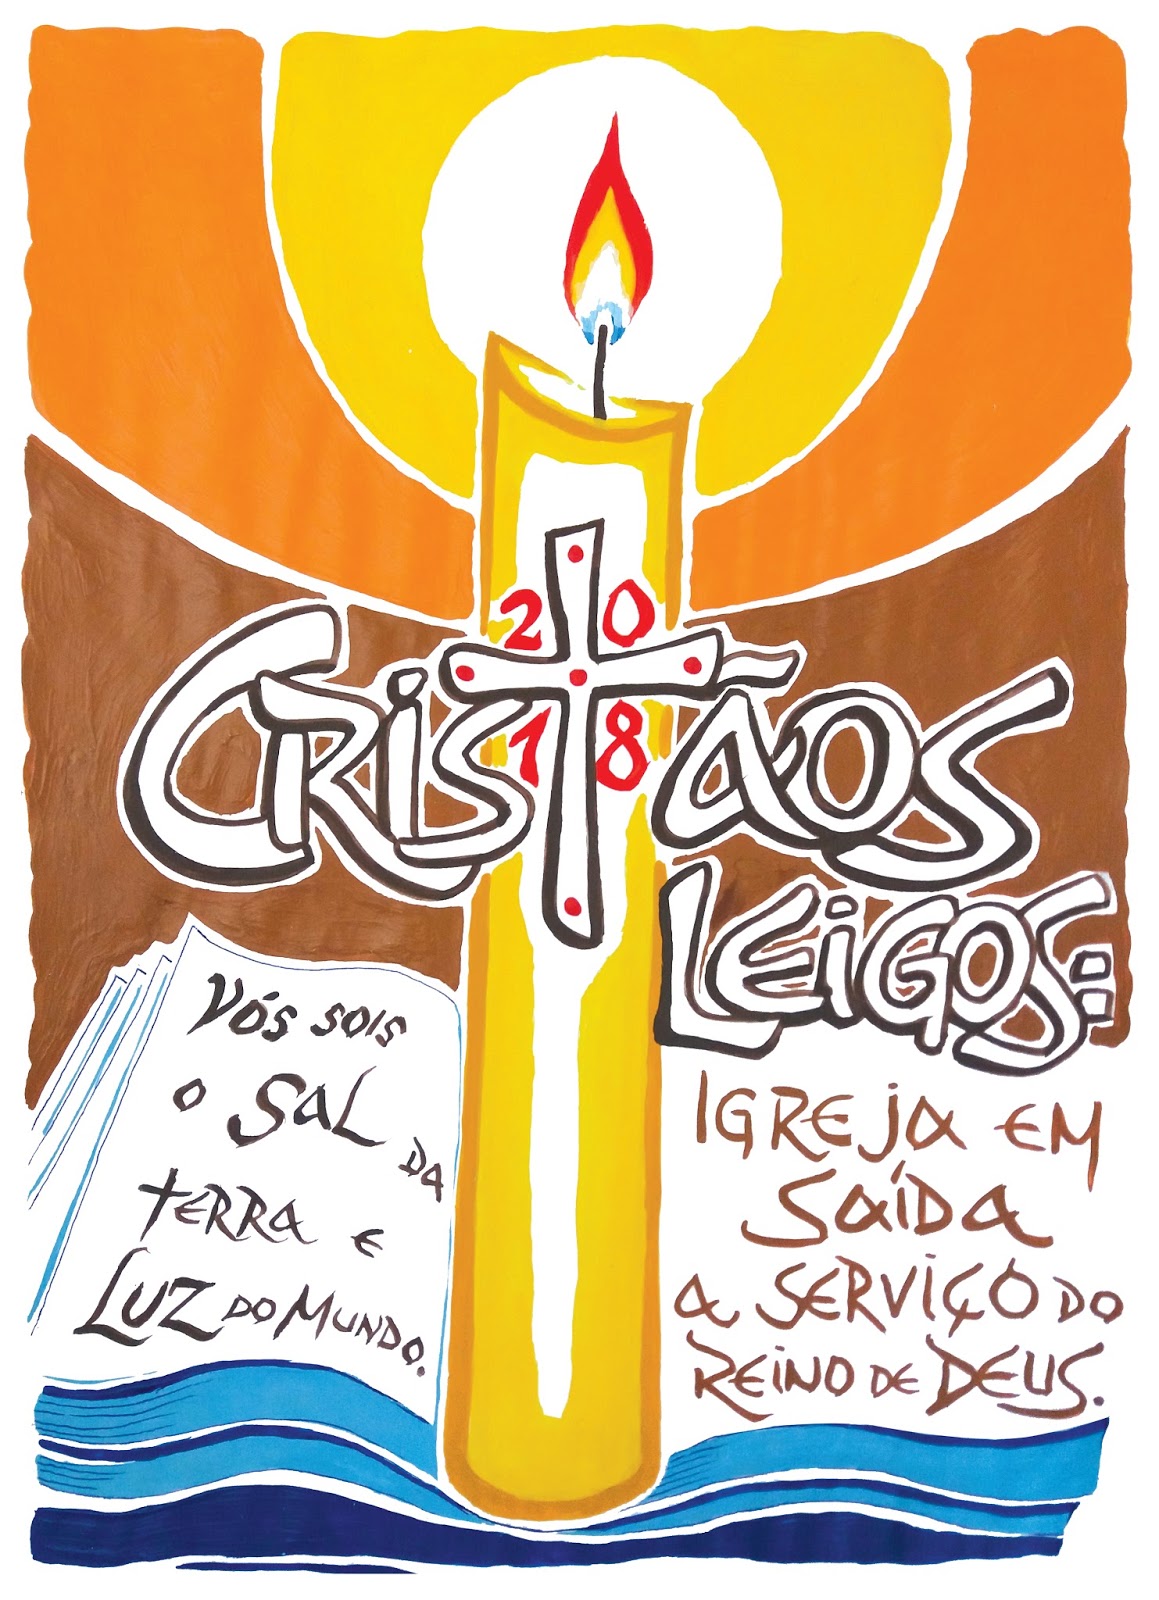 20
CRISTÃOS
18
LEIGOS:
VÓS SOIS
O SAL DA
TERRA E
LUZ DO MUNDO.
IGREJA EM
SAÍDA
A SERVIÇO DO
REINO DE DEUS.